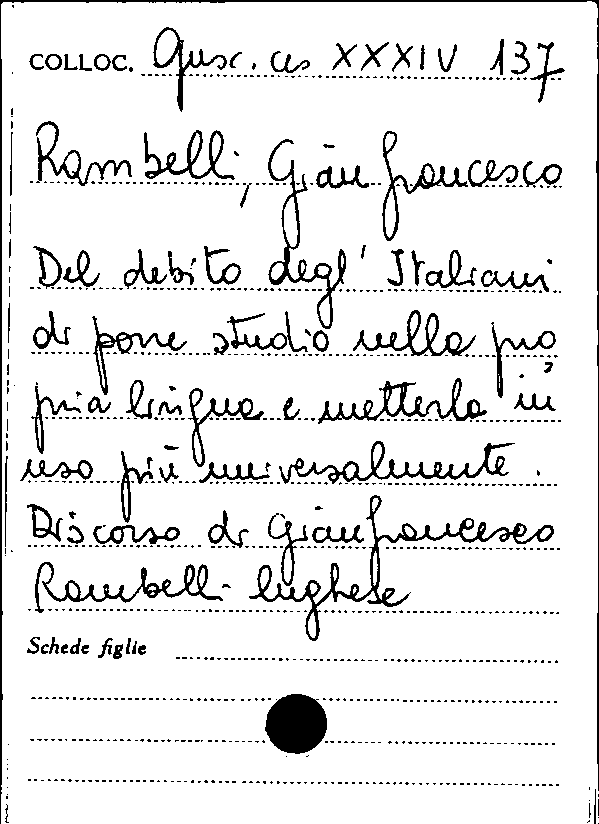 COLLOC. Opusc. ces XXXIV 137
Rambelli, Gian Francesco
Del debito degl' Italiani
di porre studio nella pro
pria lingua e metterla in
uso più universalmente.
Discorso di Gianfrancesco
Rambelli lughese
Schede figlie